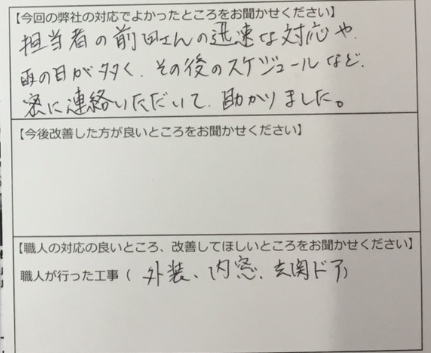 【今回の弊社の対応でよかったところをお聞かせください】
担当者の前田さんの迅速な対応や、
雨の日が多く、その後のスケジュールなど、
密に連絡いただいて、助かりました。
【今後改善した方が良いところをお聞かせください】
【職人の対応の良いところ、改善してほしいところをお聞かせください】
職人が行った工事（ 外装、内窓、玄関ドア）